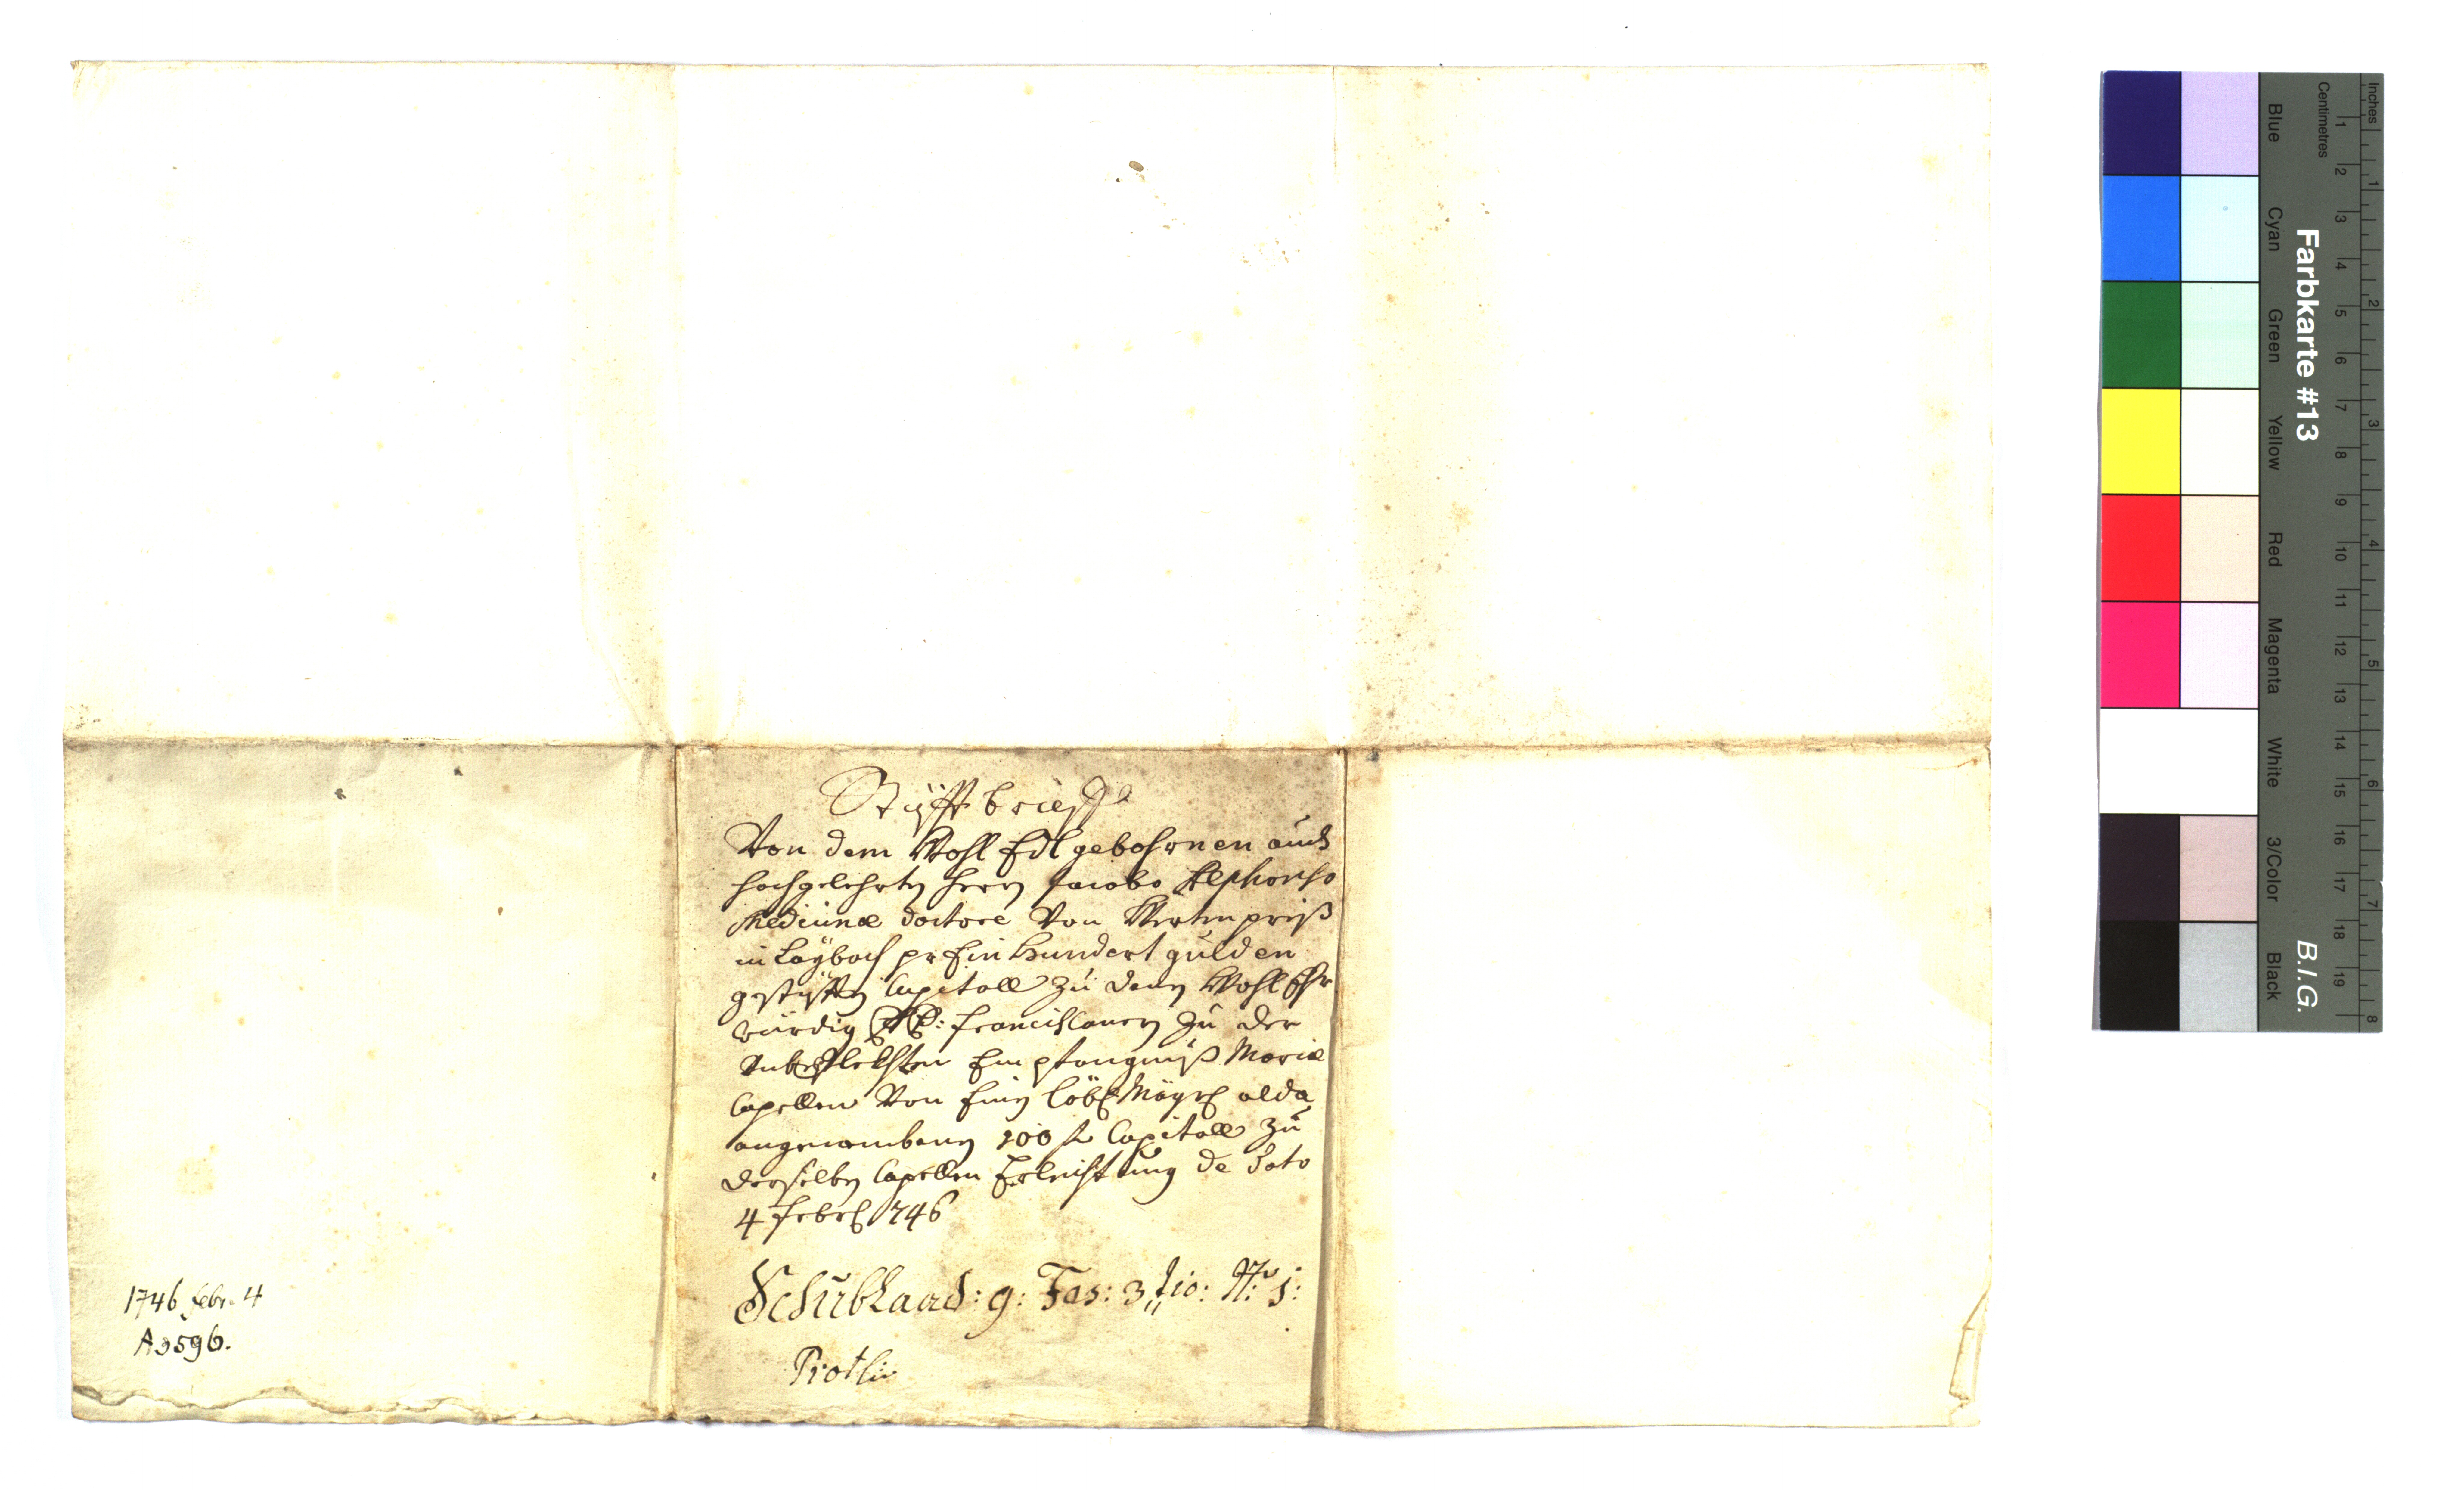 Stüfftbrieff
Von dem Wohl Edlgebohrnen auch
hochgelehrten herrn Jacobo Alphonso
Medicinæ doctore Von Wertenpreiß
in Laÿbach pr Ein hundert gulden
gestüfften Capitall zu denen Wohl Ehr
würdig PP: Franciscanern zu der
Unbeflekhten Empfangnuß Mariæ
Capellen Von Einer löbl alda
angenombenen 100 f Capitall zu
derselben Capellen Erleichtung de dato
4 Febr 746
Schubkaad: 9: Fas: 3 tio: N: 1:
1746 febr. 4
A 3596.
Inches
Centimetres
Farbkarte #13
B.I.G.
Blue
Cyan
Green
Yellow
Red
Magenta
White
3/Color
Black
1 2 3 4 5 6 7 8 9 10 11 12 13 14 15 16 17 18 19
1 2 3 4 5 6 7 8